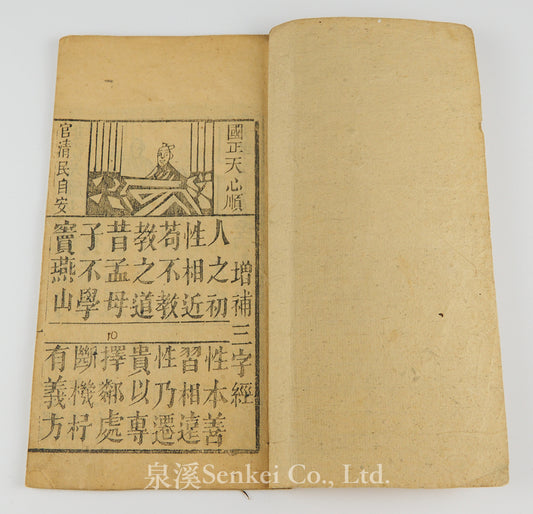 增補三字經
國正天心順
官清民自安
人之初
性本善
性相近
習相遠
苟不教
性乃遷
教之道
貴以專
昔孟母
擇鄰處
子不學
斷機杼
竇燕山
有義方
泉溪Senkei Co., Ltd.